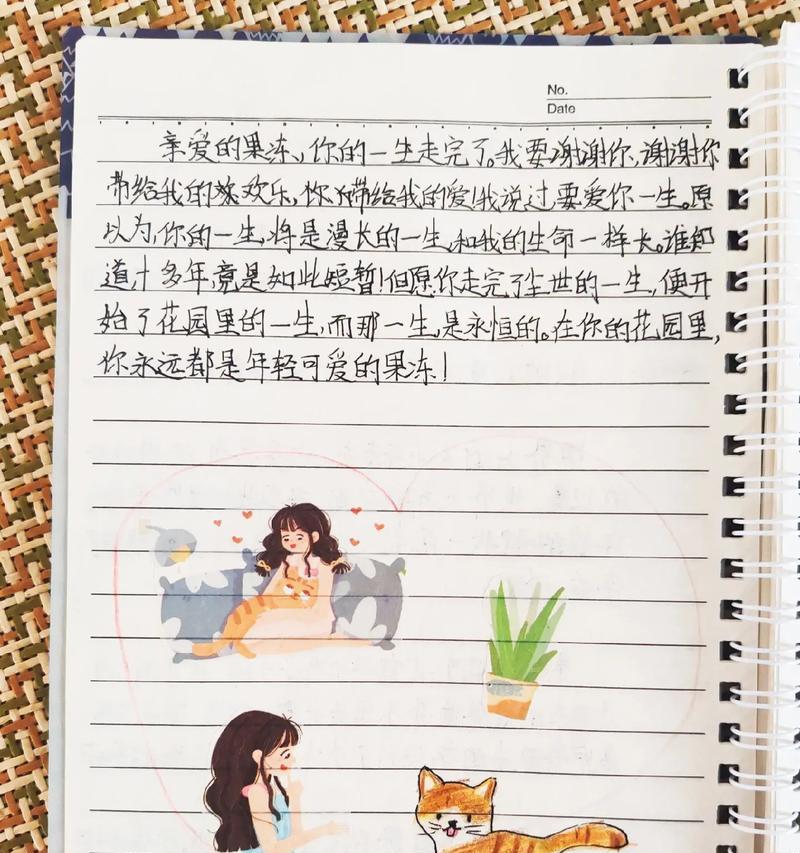 No.
Date
亲爱的果冻,你的一生走完了。我要谢谢你,谢谢你
带给我的欢乐,你带给我的爱!我说过要爱你一生。原
以为,你的一生,将是漫长的一生,和我的生命一样长。谁知
道,十多年,竟是如此短暂!但愿,你走完了尘世的一生,便开
始了花园里的一生,而那一生,是永恒的。在你的花园里,
你永远都是年轻可爱的果冻!